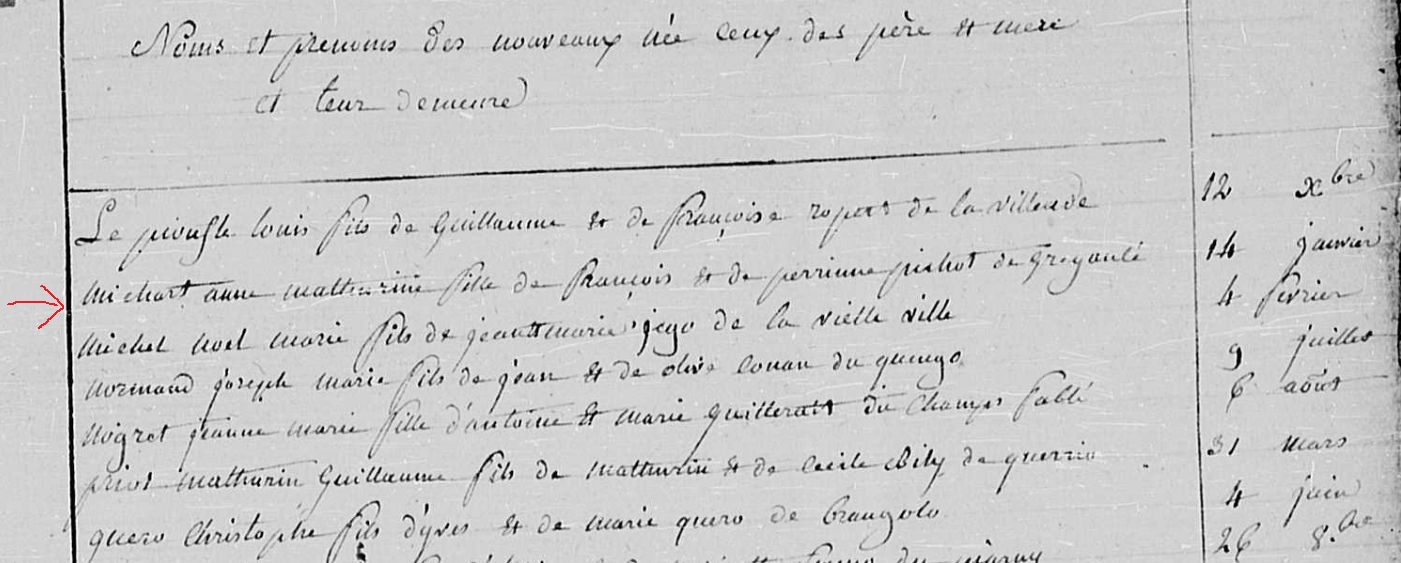 Noms et prenoms des nouveaux née ceux des père et mere
et leur demeure
Le pioufle louis fils de Guillaume et de françoise ropert de la villeude 12 xbre
Michart anne mathurine fille de françois et de perrinne pichot de Gregaulé 14 janvier
Michel noel marie fils de jean et marie jego de la vielle ville 4 fevrier
Normand joseph marie fils de jean et de olive Conan du quengo 9 juillet
Nogret jeanne marie fille d'antoine et marie Guillerait du Champs fablé 6 août
priot mathurin Guillaume fils de mathurin et de Cecile Bily de querrio 31 mars
quero Christophe fils d'yves et de marie quero de brangolo 4 juin
26 8.bre